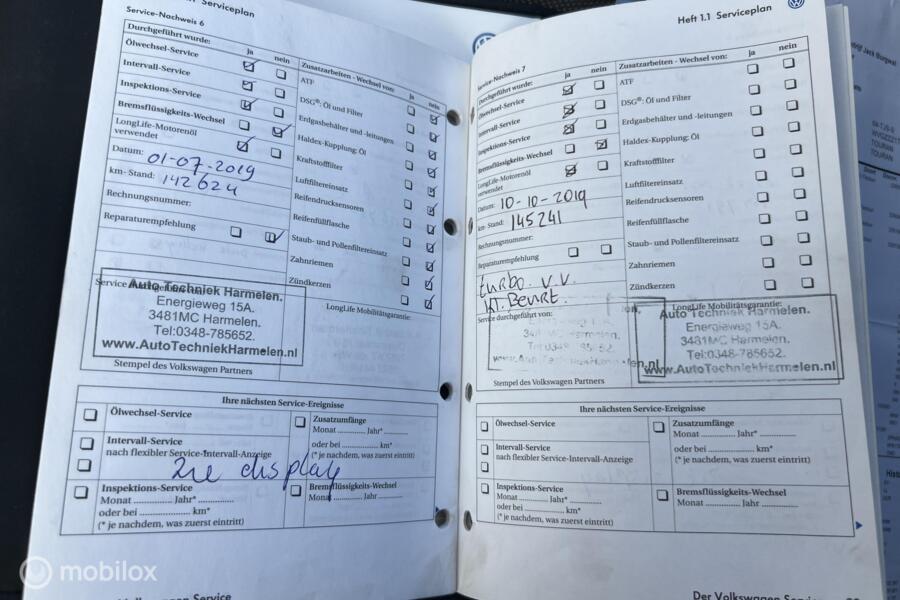 Serviceplan
Service-Nachweis 6
Durchgeführt wurde:
ja
nein
Ölwechsel-Service
Intervall-Service
Inspektions-Service
Bremsflüssigkeits-Wechsel
LongLife-Motorenöl
verwendet
Datum: 01-07-2019
km- Stand: 142624
Rechnungsnummer:
Reparaturempfehlung
Zusatzarbeiten - Wechsel von:
ja
nein
ATF
DSG®: Öl und Filter
Erdgasbehälter und -leitungen
Haldex-Kupplung: Öl
Kraftstofffilter
Luftfiltereinsatz
Reifendrucksensoren
Reifenfüllflasche
Staub- und Pollenfiltereinsatz
Zahnriemen
Zündkerzen
LongLife Mobilitätsgarantie:
Auto Techniek Harmelen.
Energieweg 15A.
3481MC Harmelen.
Tel:0348-785652.
www.AutoTechniekHarmelen.nl
Stempel des Volkswagen Partners
Ihre nächsten Service-Ereignisse
Ölwechsel-Service
Intervall-Service
nach flexibler Service-Intervall-Anzeige
Zie display
Inspektions-Service
Monat Jahr*
oder bei km*
(* je nachdem, was zuerst eintritt)
Zusatzumfänge
Monat Jahr*
oder bei km*
(* je nachdem, was zuerst eintritt)
Bremsflüssigkeits-Wechsel
Monat Jahr
Heft 1.1 Serviceplan
Service-Nachweis 7
Durchgeführt wurde:
ja
nein
Ölwechsel-Service
Intervall-Service
Inspektions-Service
Bremsflüssigkeits-Wechsel
LongLife-Motorenöl
verwendet
Datum: 10-10-2019
km- Stand: 145241
Rechnungsnummer:
Reparaturempfehlung
turbo. v.v
Service durchgeführt von:
Zusatzarbeiten - Wechsel von:
ja
nein
ATF
DSG®: Öl und Filter
Erdgasbehälter und -leitungen
Haldex-Kupplung: Öl
Kraftstofffilter
Luftfiltereinsatz
Reifendrucksensoren
Reifenfüllflasche
Staub- und Pollenfiltereinsatz
Zahnriemen
Zündkerzen
LongLife Mobilitätsgarantie:
Auto Techniek Harmelen.
Energieweg 15A.
3481MC Harmelen.
Tel:0348-785652.
www.AutoTechniekHarmelen.nl
Stempel des Volkswagen Partners
Ihre nächsten Service-Ereignisse
Ölwechsel-Service
Intervall-Service
nach flexibler Service-Intervall-Anzeige
Inspektions-Service
Monat Jahr*
oder bei km*
(* je nachdem, was zuerst eintritt)
Zusatzumfänge
Monat Jahr*
oder bei km*
(* je nachdem, was zuerst eintritt)
Bremsflüssigkeits-Wechsel
Monat Jahr
Der Volkswagen
TOURAN
TOURAN
mobilox